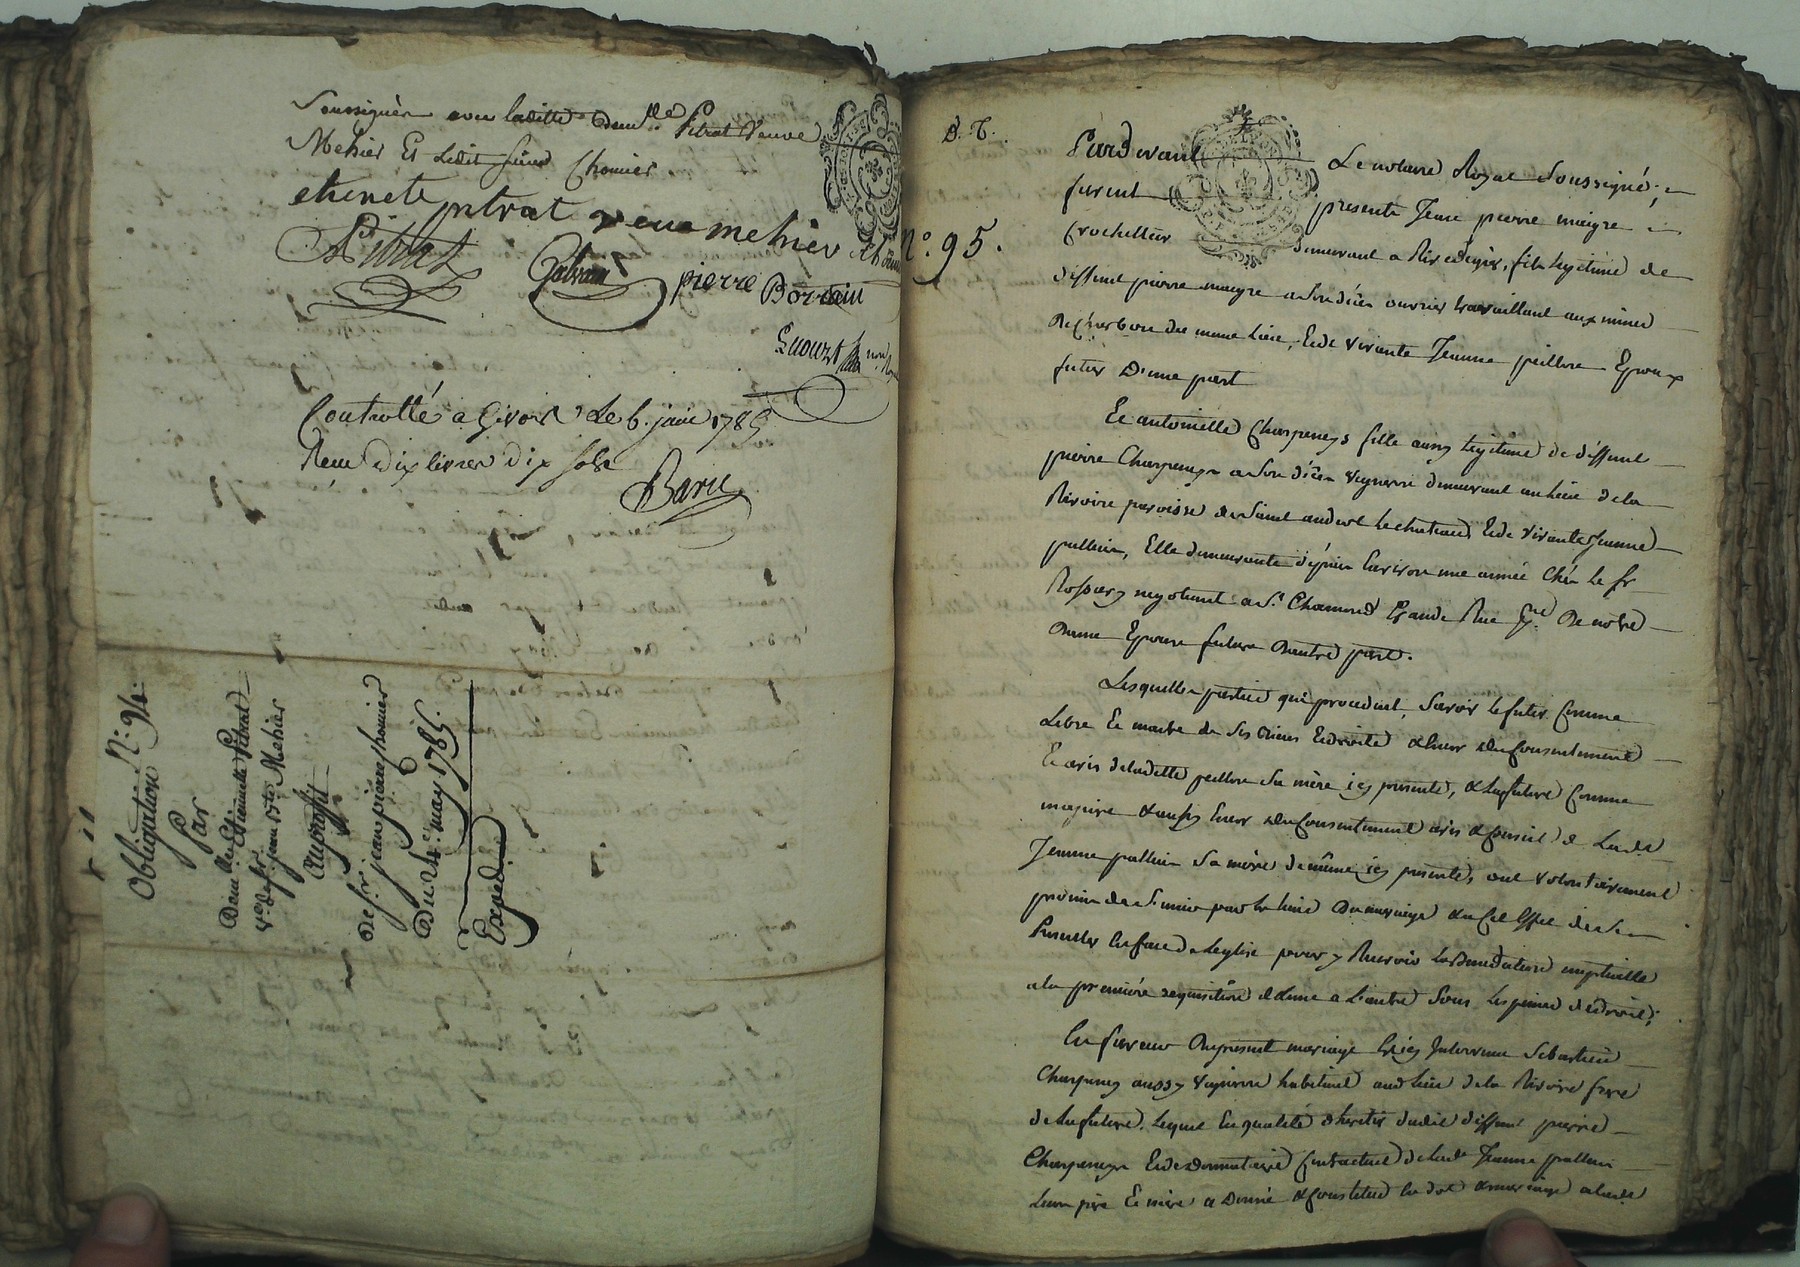 Soussignés avec laditte dem.lle Pitrat veuve
Mehier Et Ledit sieur Chomier
etienete pitrat veuve mehier chomier
Pitrat Galvain pierre Borrein
no.re Royal
Controllé a Givors le 6. juin 1785
Reçu dix livres dix sols
Barie
Obligation N.o 94.
Par
D.elle Etiennette Pitrat
v.e de s.r jean Mehier
Au proffit
de s.r jean pierre Chomier
Du 24.e may 1785.
Expedié
D. T.
N.o 95.
Pardevant Le notaire Royal Soussigné;
furent presents Jean pierre maigre
Crochetteur demeurant a Rivedegier, fils legitime de
deffunt pierre maigre a son décès ouvrier travaillant aux mines
de Charbon du meme lieu, Et de vivante Jeanne Epoux
futur D'une part
Et antoinette Charpenay fille aussy legitime de deffunt
pierre Charpenay a son décès vigneron demeurant au lieu de la
Rivoire paroisse de Saint andeol le chateau Et de vivante Jeanne
pallein, Elle demeurante depuis Environ une année Chés le s.r
negotiant a S.t Chamond Grande Rue de notre
Dame Epouse future D'autre part.
Lesquelles parties qui procedent, Savoir le futur Comme
Libre Et maitre de ses Droits du Consentement
Et avis de laditte sa mère icy presente, & la future Comme
majeure & aussy du Consentement avis & Conseil de Lad.te
Jeanne pallein Sa mère de même icy presente, ont volontairement
promis de s'unir par le lien Du mariage & a cet Effet de se
Presenter En face de Leglise pour y Recevoir la Benediction nuptialle
a la première requisition de L'une a L'autre Sous les peines de droit;
En faveur Du present mariage Est icy Intervenu Sebastien
Charpenay aussy vigneron habitant aud. lieu de la Rivoire frere
de la future, lequel En qualité d'heritier dudit deffunt pierre
Charpenay Et de Donnataire Contractuel de lad.te Jeanne pallein
Leurs père Et mère a Donné & Constitué En dot & mariage a lad.te